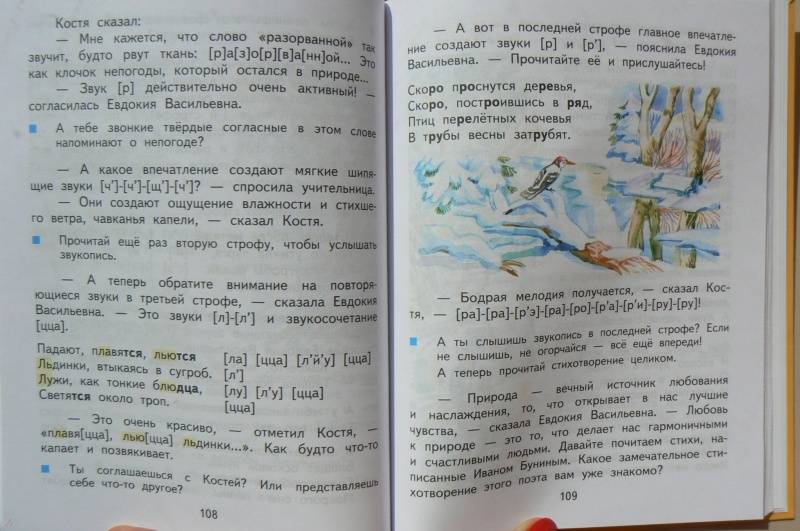 Костя сказал:
— Мне кажется, что слово «разорванной» так
звучит, будто рвут ткань: [р]а[з]о[р][в]а[нн]ой... Это
как клочок непогоды, который остался в природе...
— Звук [р] действительно очень активный! —
согласилась Евдокия Васильевна.
А тебе звонкие твёрдые согласные в этом слове
напоминают о непогоде?
— А какое впечатление создают мягкие шипя-
щие звуки [ч’]-[ч’]-[щ’]-[ч’]? — спросила учительница.
— Они создают ощущение влажности и стихше-
го ветра, чавканья капели, — сказал Костя.
Прочитай ещё раз вторую строфу, чтобы услышать
звукопись.
— А теперь обратите внимание на повторя-
ющиеся звуки в третьей строфе, — сказала Евдокия
Васильевна. — Это звуки [л]-[л’] и звукосочетание
[цца].
Падают, плавятся, льются [ла] [цца] [л’й’у] [цца]
Льдинки, втыкаясь в сугроб. [л’]
Лужи, как тонкие блюдца, [лу] [л’у] [цца]
Светятся около троп. [цца]
— Это очень красиво, — отметил Костя, —
«плавя[цца], лью[цца] льдинки...». Как будто что-то
капает и позвякивает.
Ты соглашаешься с Костей? Или представляешь
себе что-то другое?
108
— А вот в последней строфе главное впечатле-
ние создают звуки [р] и [р’], — пояснила Евдокия
Васильевна. — Прочитайте её и прислушайтесь!
Скоро проснутся деревья,
Скоро, построившись в ряд,
Птиц перелётных кочевья
В трубы весны затрубят.
— Бодрая мелодия получается, — сказал Кос-
тя, — [ра]-[ра]-[р’э]-[ра]-[ро]-[р’а]-[р’и]-[ру]-[ру]!
А ты слышишь звукопись в последней строфе? Если
не слышишь, не огорчайся — всё ещё впереди!
А теперь прочитай стихотворение целиком.
— Природа — вечный источник любования
и наслаждения, то, что открывает в нас лучшие
чувства, — сказала Евдокия Васильевна. — Любовь
к природе — это то, что делает нас гармоничными
и счастливыми людьми. Давайте почитаем стихи, на-
писанные Иваном Буниным. Какое замечательное сти-
хотворение этого поэта вам уже знакомо?
109